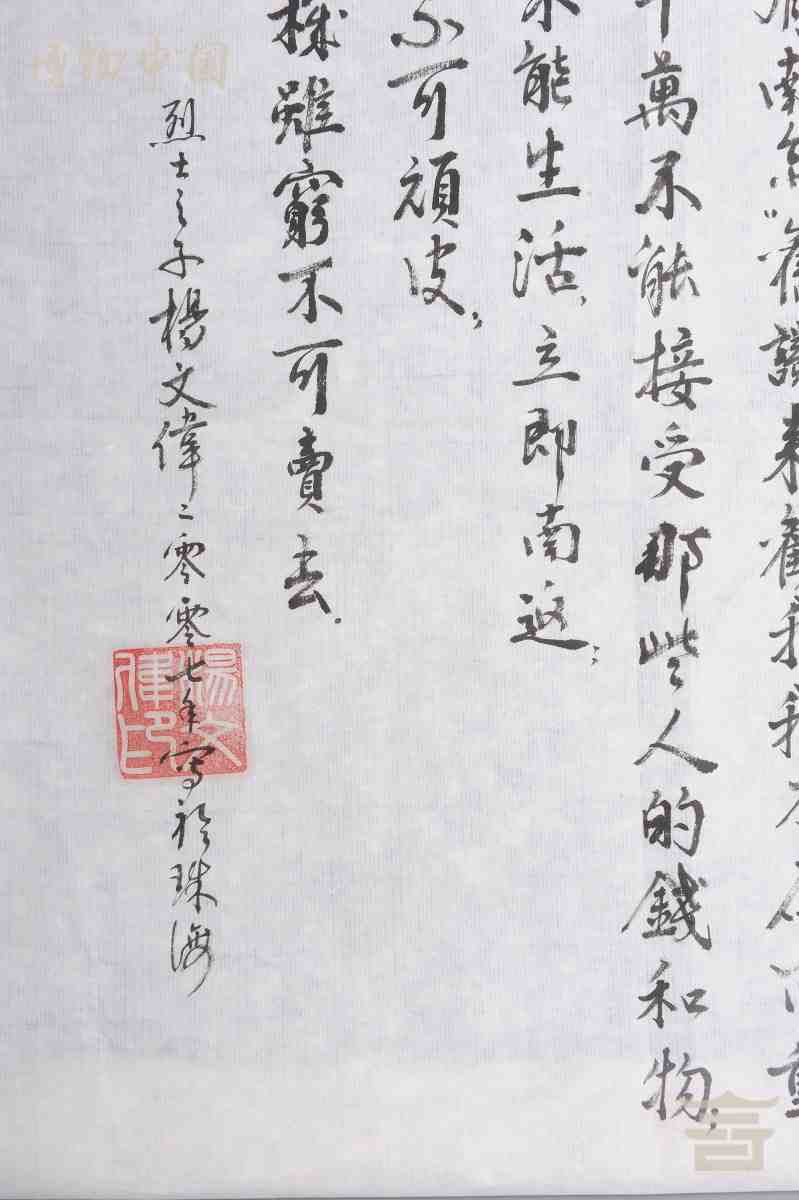 南京舊誼来勸我我
萬不能接受那些人的錢和物；
不能生活，立即南返；
不可頑皮；
機雖窮不可賣去.
烈士之子楊文偉二零零七年寫於珠海
楊文偉印
博物中國